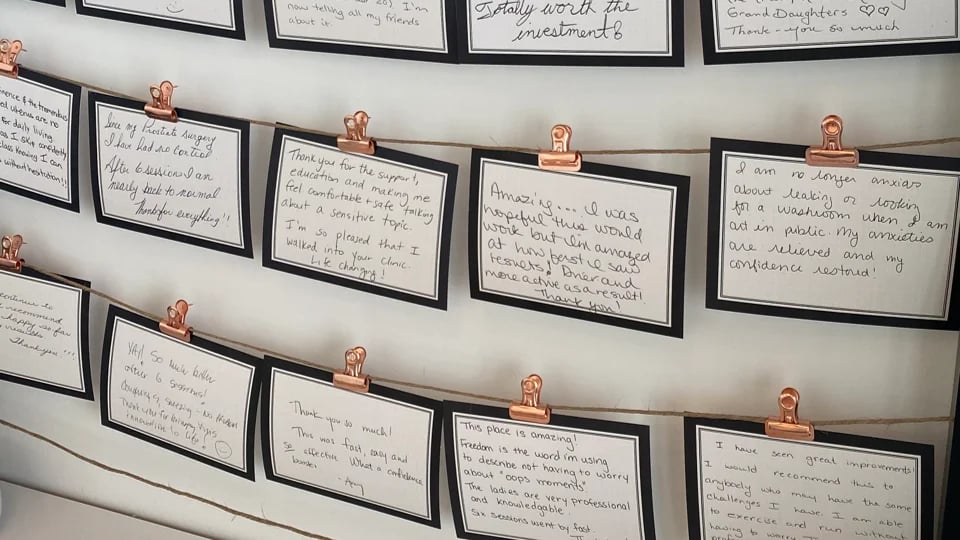 now telling all my friends
about it.
Totally worth the
investment
GrandDaughters ♡♡
Thank-you so much
& the tremendous
uterus are no
for daily living.
as I skip confidently
class knowing I can
without hesitation!!
Since my Prostate surgery
I have had no control
After 6 sessions I am
nearly back to normal
Thanks for everything!!
Thank you for the support,
education and making me
feel comfortable + safe talking
about a sensitive topic.
I'm so pleased that I
walked into your clinic.
Life changing!
Amazing... I was
hopeful this would
work but I'm amazed
at how fast I saw
results! Drier and
more active as a result!
Thank you!
I am no longer anxious
about leaking or looking
for a washroom when I am
out in public. My anxieties
are relieved and my
confidence restored!
continue to
recommend
happy so far
results
Thank you!!!
YAY! So much better
after 6 sessions!
Coughing & sneezing - No problem
Thank you for bringing
innovation to life!
Thank you so much!
This was fast, easy and
so effective. What a confidence
booster
- Amy
This place is amazing!
Freedom is the word im using
to describe not having to worry
about "oops moments"
The ladies are very professional
and knowledgable.
Six sessions went by fast
I have seen great improvements!
I would recommend this to
anybody who may have the same
challenges I have. I am able
to exercise and run without
having to worry